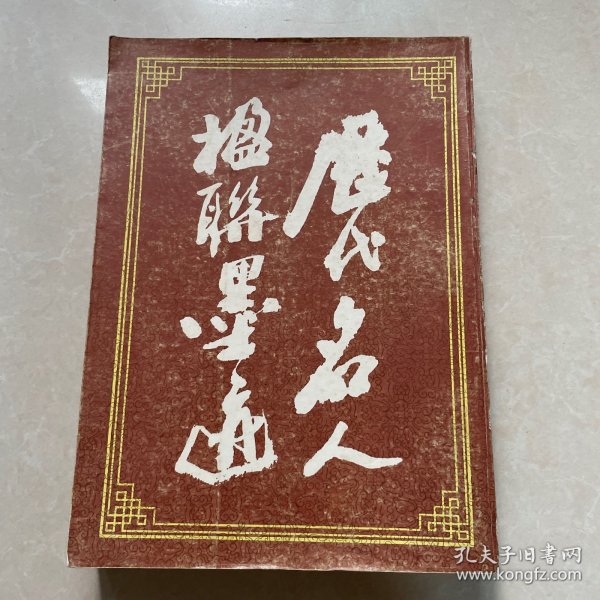 歷代名人
楹聯墨迹
孔夫子旧书网
www.kongfz.com